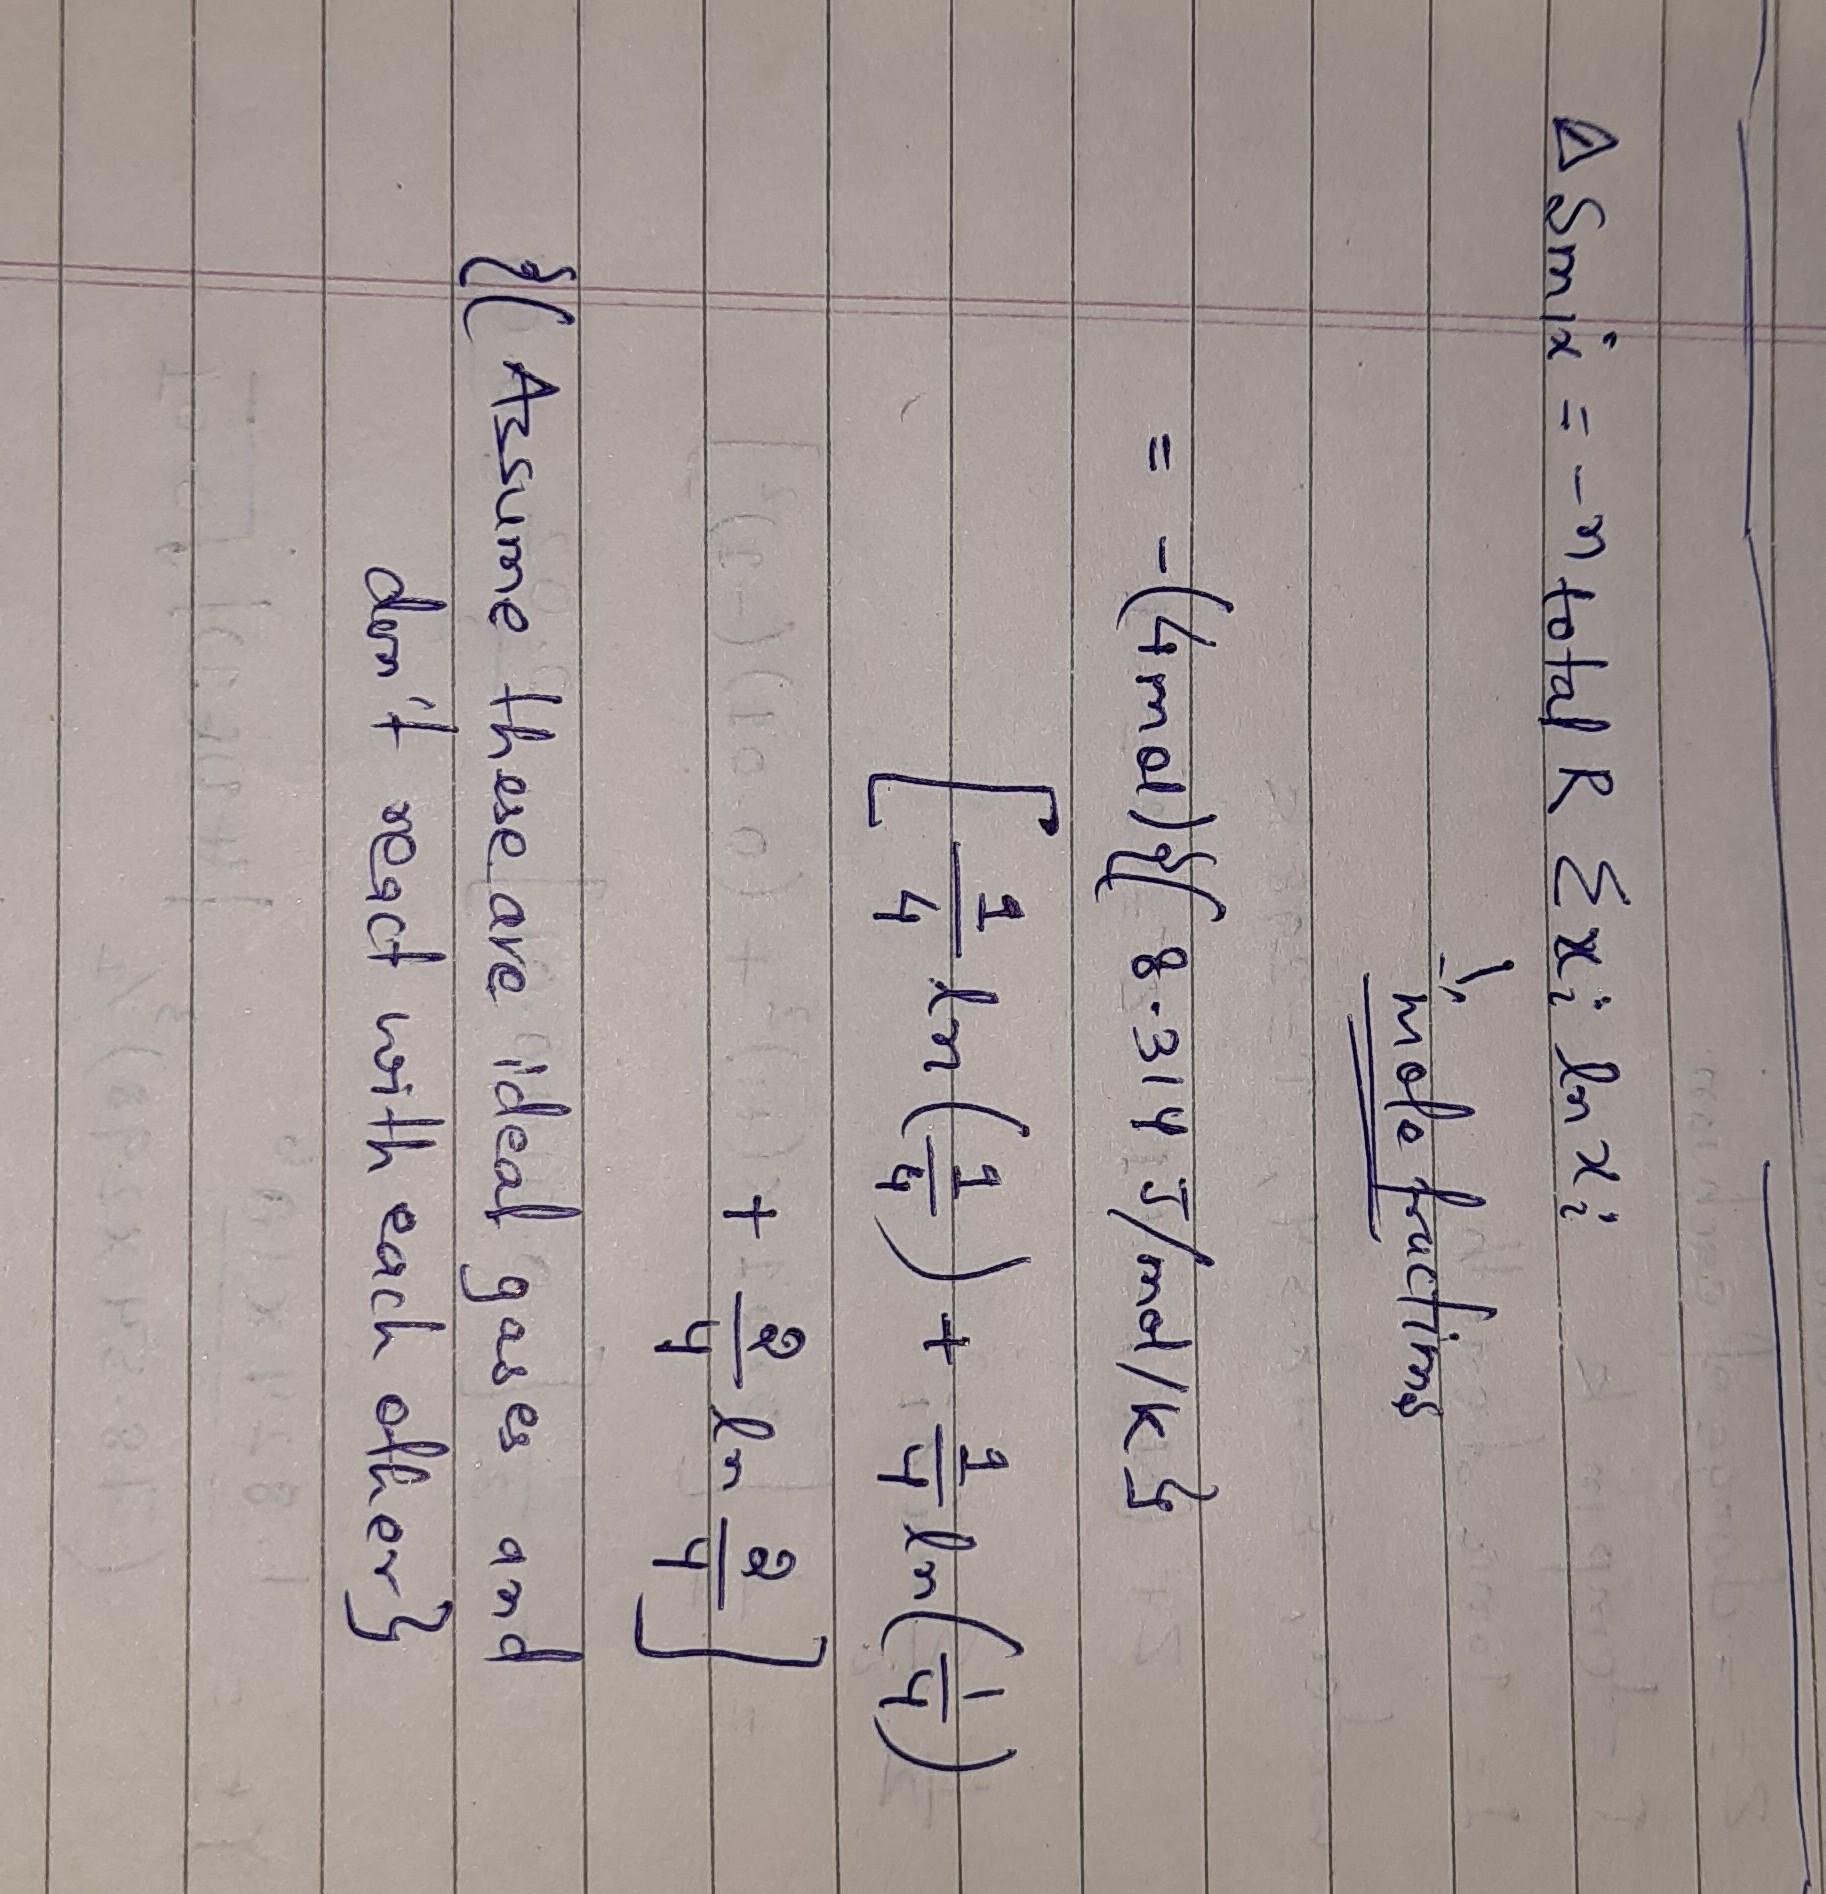 ΔSmix = -n total R Σ xi ln xi
mole fractions
= -(4 mol) { 8.314 J/mol/K }
[ 1/4 ln(1/4) + 1/4 ln(1/4)
+ 2/4 ln 2/4 ]
{( Assume these are ideal gases and
don't react with each other}